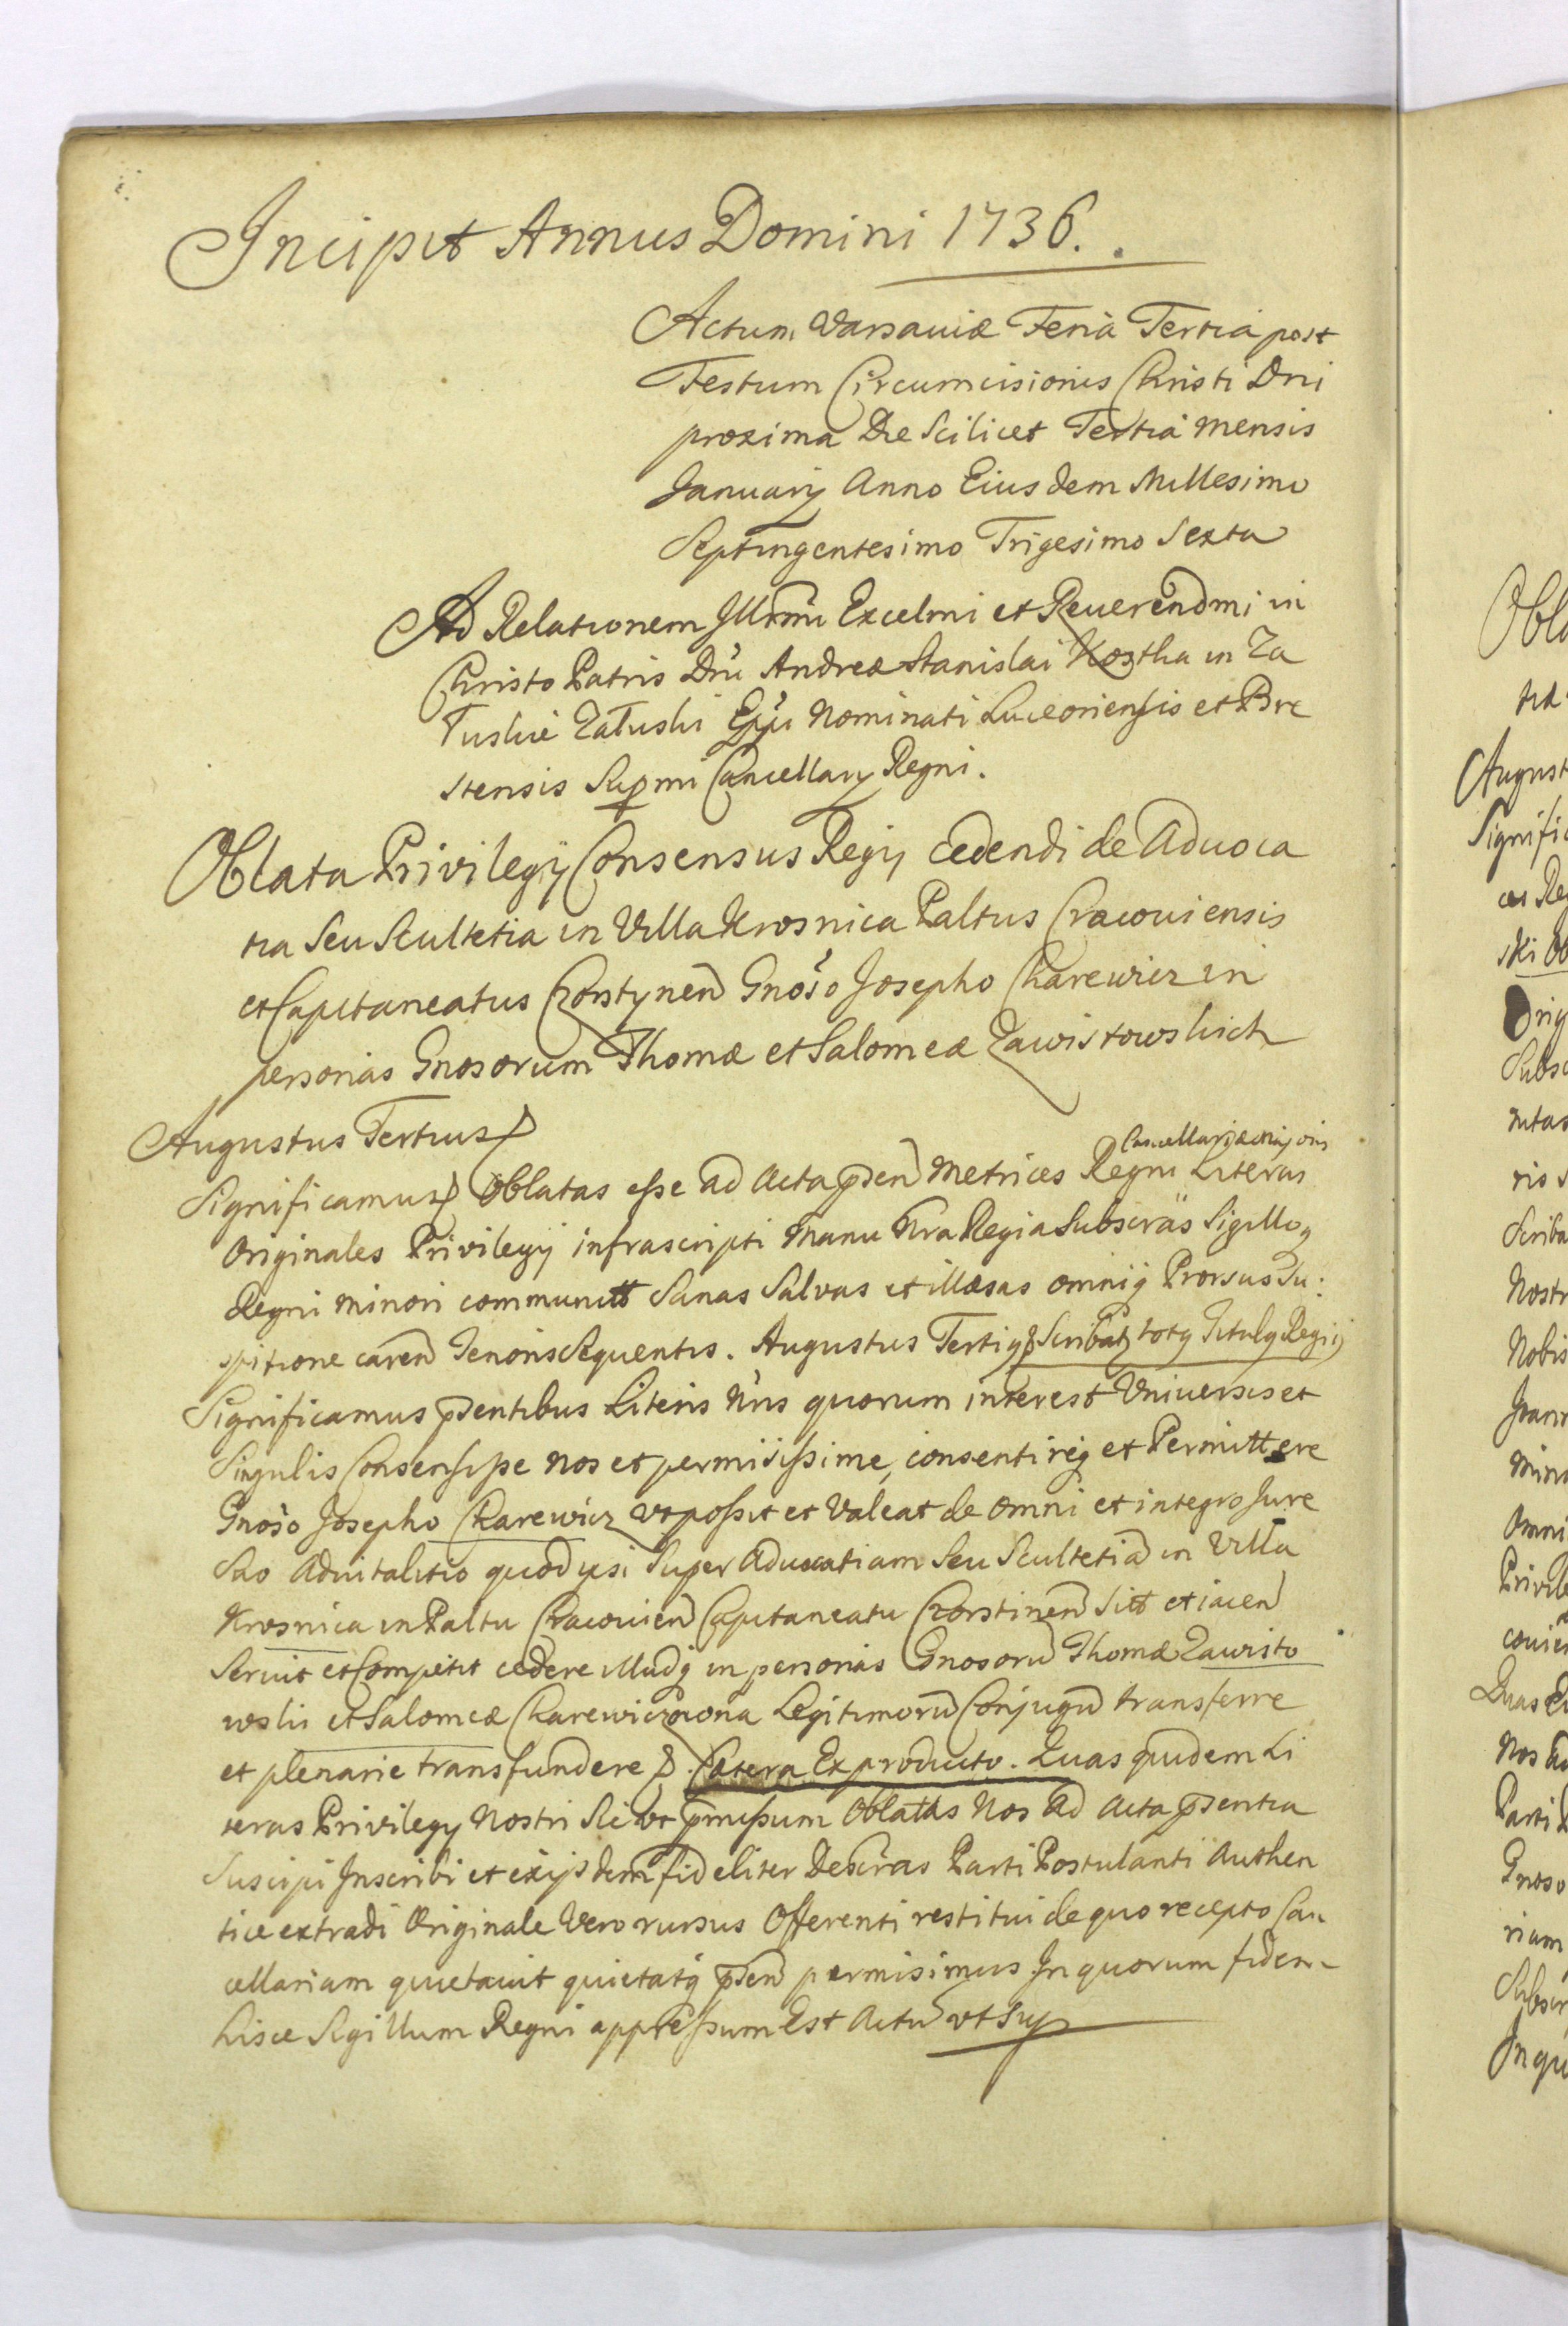 Incipit Annus Domini 1736.
Actum Varsaviæ Feriâ Tertiâ post
Festum Circumcisionis Christi Dni
proxima Die Scilicet Tertiâ Mensis
Januarij Anno Eiusdem Millesimo
Septingentesimo Trigesimo Sexto
Ad Relationem Illrmi Excelmi et Reuerendmi in
Christo Patris Dni Andreæ Stanislai Kostka in Za
łuskie Załuski Eppi Nominati Luceoriensis et Bre
stensis Supmi Cancellarij Regni.
Oblata Privilegij Consensus Regij cedendi de Aduoca
tia Seu Scultetia in Villa Krosnica Paltus Cracouiensis
et Capitaneatus Czorstynen Gnoso Josepho Charewicz in
personas Gnosorum Thomæ et Salomeæ Zawistowskich
Augustus Tertius
Cancellariæ Majoris
Significamus Oblatas esse ad Acta pnden Metrices Regni Literas
Originales Privilegij infrascripti Manu Nra Regia Subscras Sigilloq
Regni minori communitt Sanas Salvas et illæsas omniq Prorsus Su:
spitione caren Tenoris Sequentis. Augustus Tertiq Scribatq totq Titulq Regiq
Significamus pndentibus Literis Nris quorum interest Vniuersis et
Singulis Consensisse nos et permisissime, consentireq et Permittere
Gnoso Josepho Charewicz vt possit et Valeat de omni et integro Jure
Suo Aduitalitio quod ipsi Super Aduocatiam Seu Scultetia in Villa
Krosnica in Paltu Cracouien Capitaneatu Czorstinen Sitt et iacen
Seruit et Competit cedere illudq in personas Gnosoru Thomæ Zawisto
wski et Salomeæ Charewiczowna Legitimoru Conjugu transferre
et plenarie transfundere. Cætera Ex producto. Quas quidem Li
teras Privilegij Nostri Sic vt pmissum Oblatas Nos ad Acta pndentia
Suscipi Inscribi et exijsdem fideliter Descras Parti Postulanti Authen
tice extradi Originale Vero rursus Offerenti restitui de quo recepto Can
cellariam quietauit quietatq pnden permisimus. In quorum fidem
hisce Sigillum Regni appressum Est Actu vt Sup